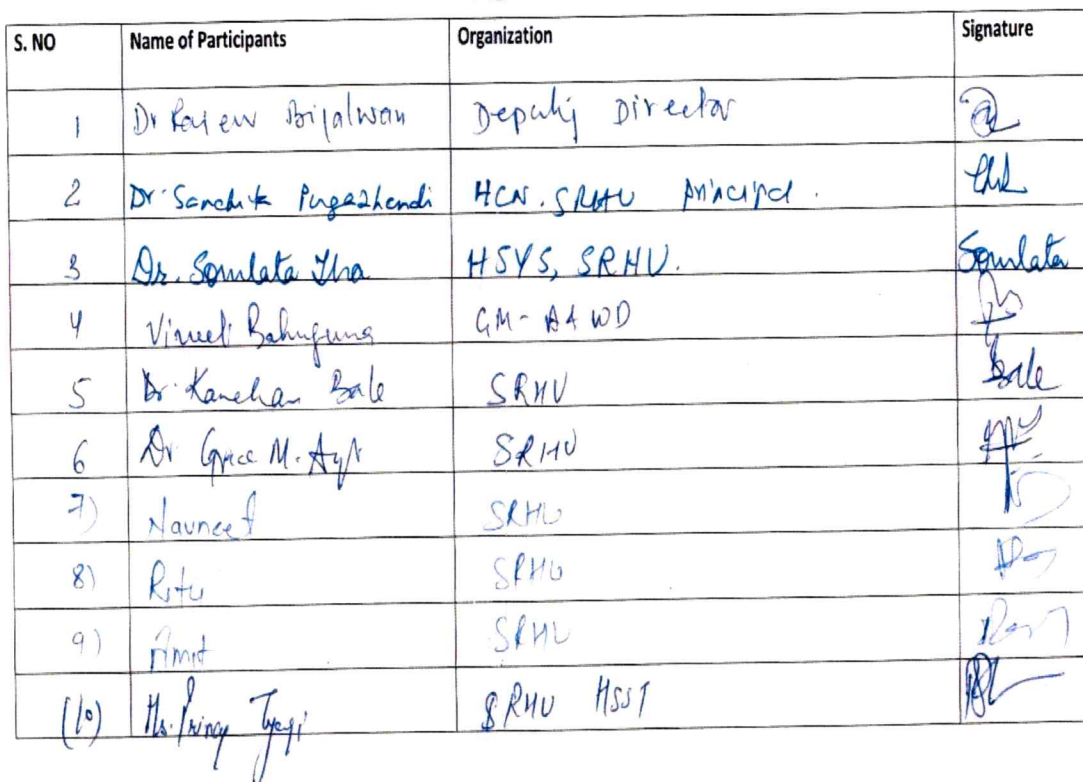 S. NO Name of Participants Organization Signature
1 Dr Rajeev Bijalwan Deputy Director
2 Dr. Sanchita Pugazhendi HCN. SRHU Principal.
3 Dr. Somlata Jha HSYS, SRHU. Somlata
4 Vineet Bahuguna GM- A4 WD
5 Dr Kanchan Bale SRHU Bale
6 Dr Grace M. SRHU
7) Navneet SRHU
8) Ritu SRHU
9) Amit SRHU
(10) Tyagi SRHU HSST